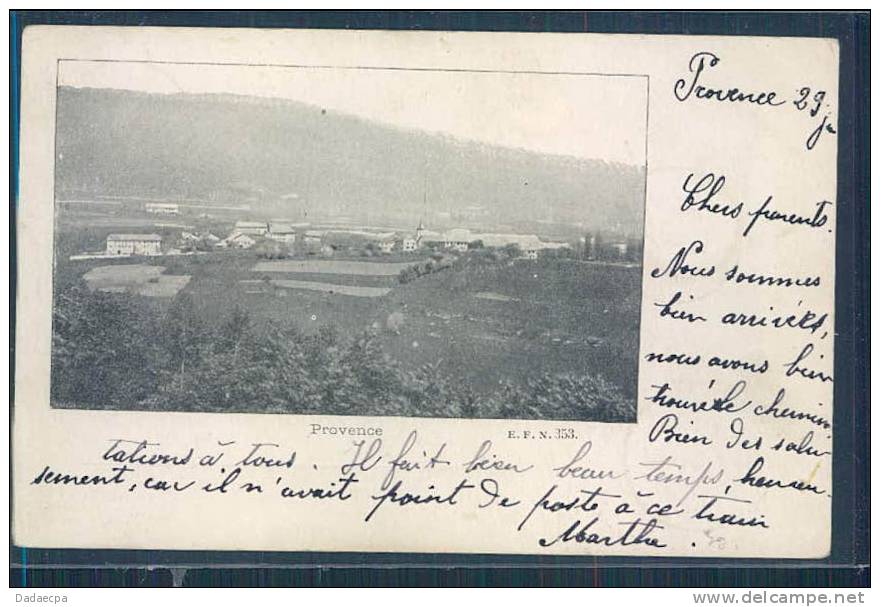 Provence 29
Chers parents.
Nous sommes
bien arrivées,
nous avons bien
trouvé le chemin.
Bien des salu-
tations à tous. Il fait bien beau temps, heureu-
sement, car il n'avait point de poste à ce train
Marthe.
Provence
E. F. N. 353.
Dadaecpa
delcampe.net